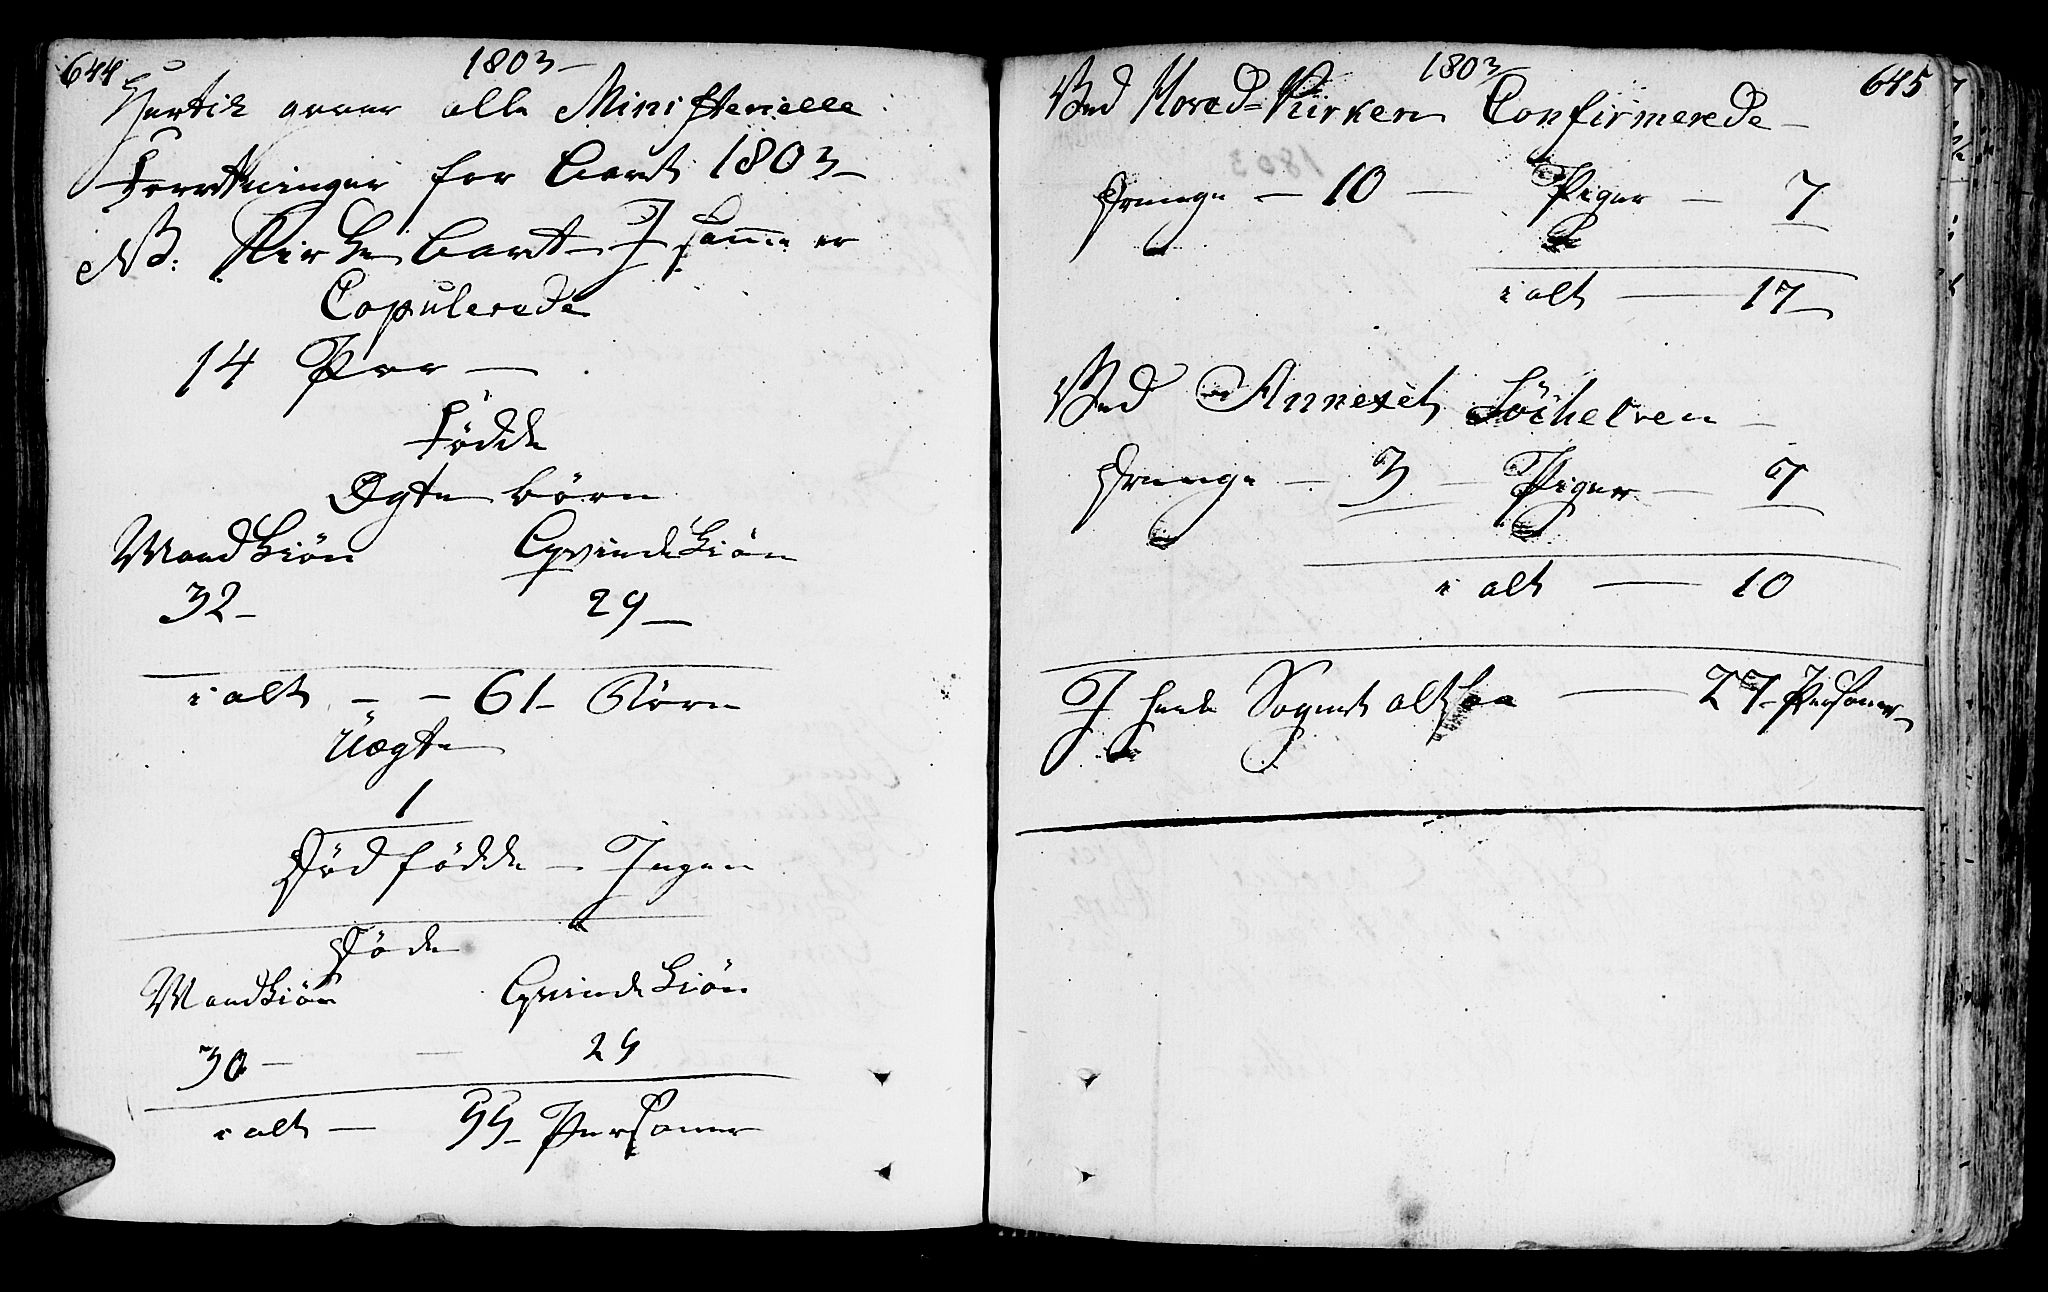 644
1803
over alle Ministerielle
Forretninger for Aaret 1803
NB. Kirke Aaret I samme er
Copulerede
14 Par
Födde
Ægte börn
Mandkiön Qvindekiön
32 29
i alt 61 Börn
Uægte
1
Dödfödde Ingen
Döde
Mandkiön Qvindekiön
30 25
i alt 55 Personer
1803
645
Ved Hoved Kirken Confirmerede
Drenge 10 Piger 7
i alt 17
Ved Annexet
Drenge 3 Piger 7
i alt 10
I hele Sognet altsaa 27 Personer